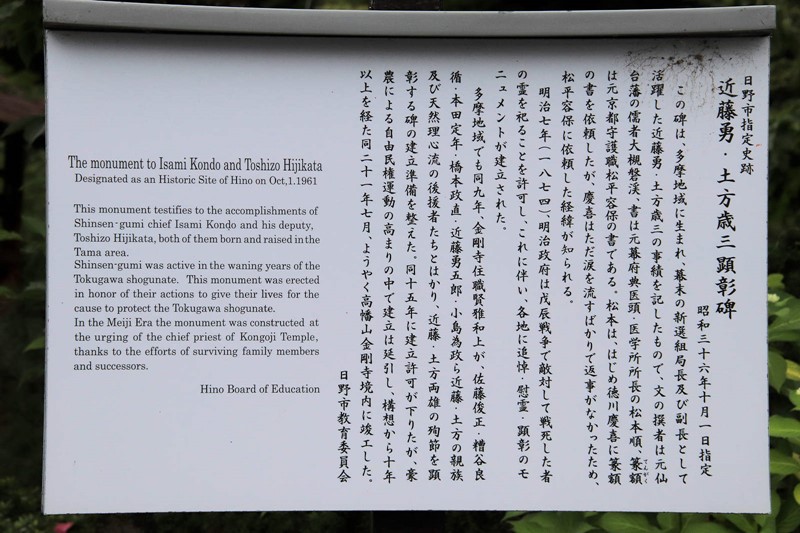 The monument to Isami Kondo and Toshizo Hijikata
Designated as an Historic Site of Hino on Oct,1.1961
This monument testifies to the accomplishments of
Shinsen-gumi chief Isami Kondo and his deputy,
Toshizo Hijikata, both of them born and raised in the
Tama area.
Shinsen-gumi was active in the waning years of the
Tokugawa shogunate. This monument was erected
in honor of their actions to give their lives for the
cause to protect the Tokugawa shogunate.
In the Meiji Era the monument was constructed at
the urging of the chief priest of Kongoji Temple,
thanks to the efforts of surviving family members
and successors.
Hino Board of Education
日野市指定史跡
近藤勇・土方歳三顕彰碑
昭和三十六年十月一日指定
この碑は、多摩地域に生まれ、幕末の新選組局長及び副長として
活躍した近藤勇・土方歳三の事績を記したもので、文の撰者は元仙
台藩の儒者大槻磐渓、書は元幕府典医頭・医学所所長の松本順、篆額
てんがく
は元京都守護職松平容保の書である。松本は、はじめ徳川慶喜に篆額
の書を依頼したが、慶喜はただ涙を流すばかりで返事がなかったため、
松平容保に依頼した経緯が知られる。
明治七年(一八七四)、明治政府は戊辰戦争で敵対して戦死した者
の霊を祀ることを許可し、これに伴い、各地に追悼・慰霊・顕彰のモ
ニュメントが建立された。
多摩地域でも同九年、金剛寺住職賢雅和上が、佐藤俊正・糟谷良
循・本田定年・橋本政直・近藤勇五郎・小島為政ら近藤・土方の親族
及び天然理心流の後援者たちとはかり、近藤・土方両雄の殉節を顕
彰する碑の建立準備を整えた。同十五年に建立許可が下りたが、豪
農による自由民権運動の高まりの中で建立は延引し、構想から十年
以上を経た同二十一年七月、ようやく高幡山金剛寺境内に竣工した。
日野市教育委員会